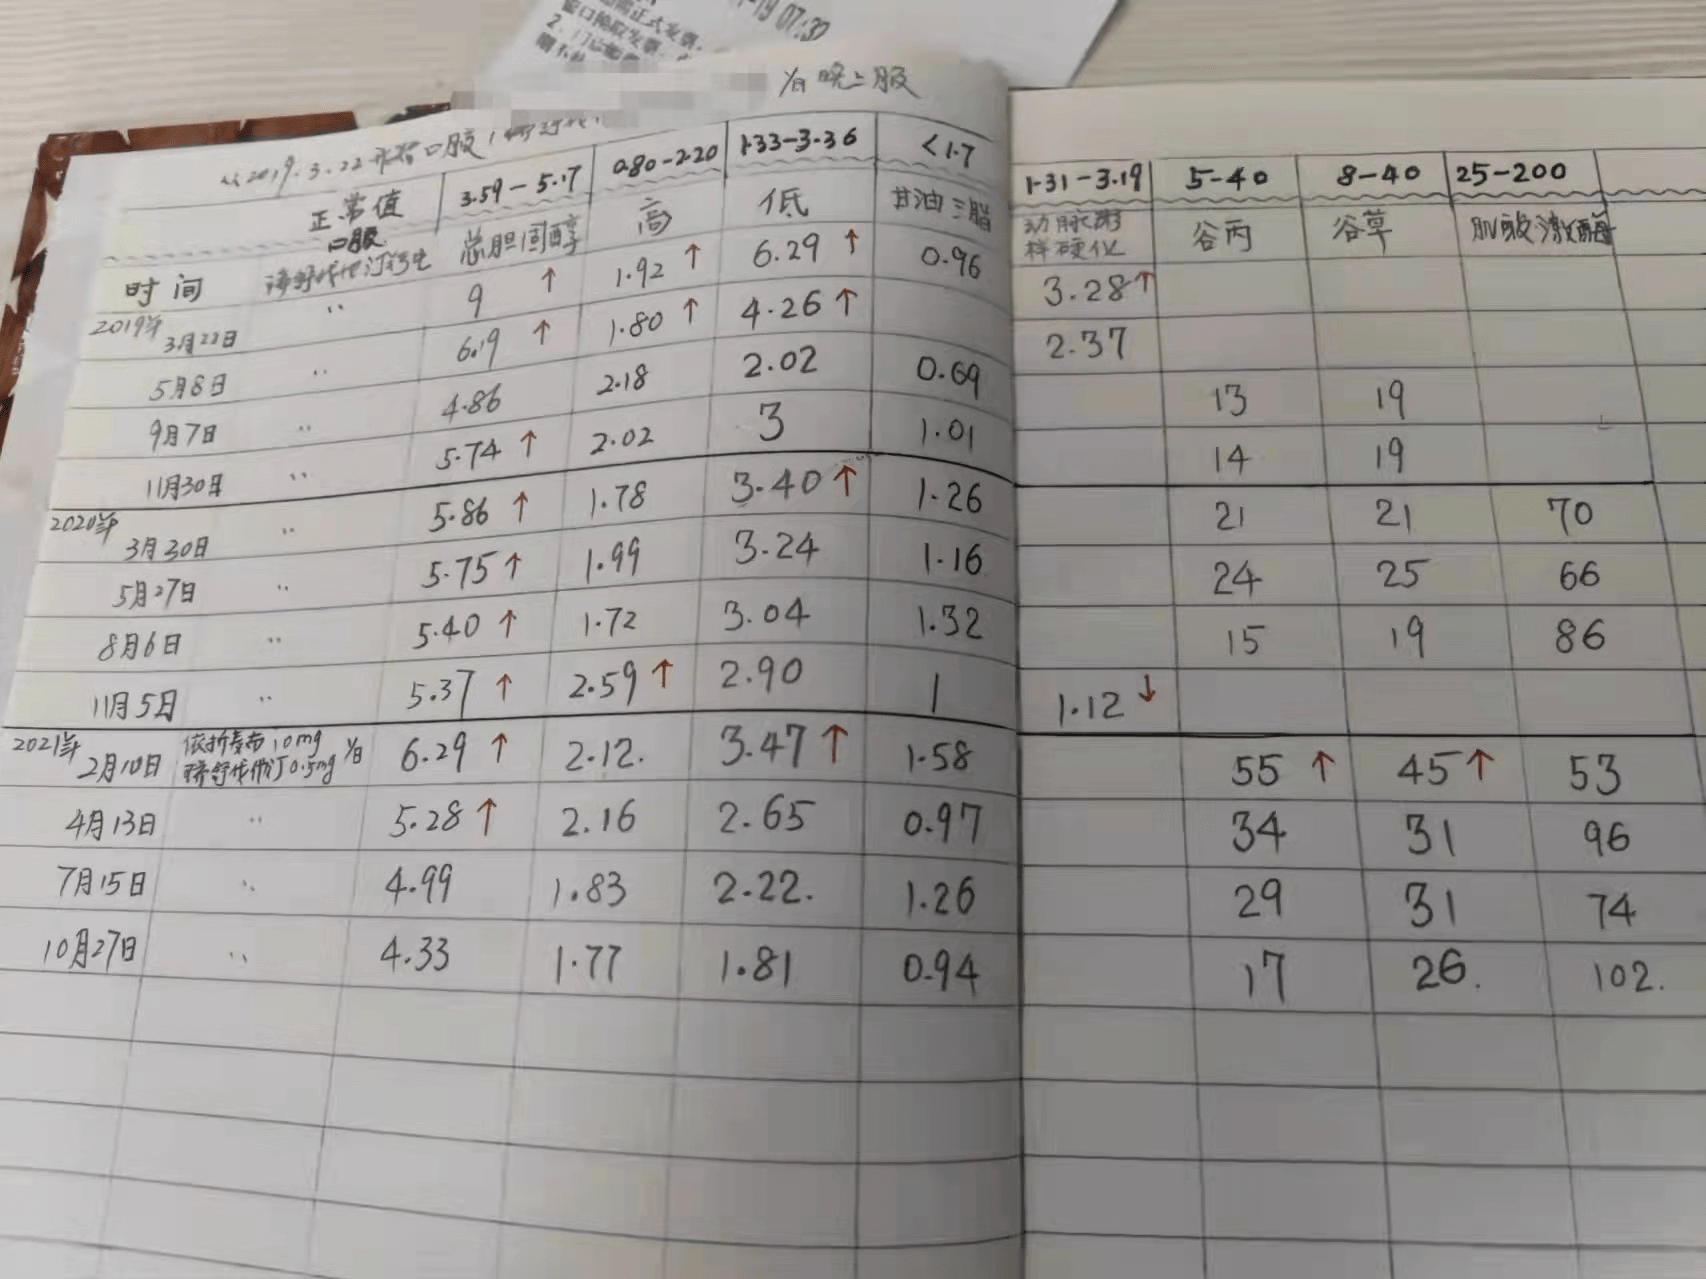 -19 07:32
正式发票
窗口换取发票
2、门诊
1/日 晚上服
从2019.3.22开始口服
正常值 3.59-5.17 0.80-2.20 1.33-3.36 <1.7 1.31-3.19 5-40 8-40 25-200
时间 口服 总胆固醇 高 低 甘油三脂 动脉粥样硬化 谷丙 谷草 肌酸激酶
2019年 3月22日 〃 9 ↑ 1.92 ↑ 6.29 ↑ 0.96 3.28↑
5月8日 〃 6.19 ↑ 1.80 ↑ 4.26 ↑ 2.37
9月7日 〃 4.86 2.18 2.02 0.69 13 19
11月30日 〃 5.74 ↑ 2.02 3 1.01 14 19
2020年 3月30日 〃 5.86 ↑ 1.78 3.40 ↑ 1.26 21 21 70
5月27日 〃 5.75 ↑ 1.99 3.24 1.16 24 25 66
8月6日 〃 5.40 ↑ 1.72 3.04 1.32 15 19 86
11月5日 〃 5.37 ↑ 2.59 ↑ 2.90 1 1.12 ↓
2021年 2月10日 依折麦布10mg 瑞舒伐他汀0.5mg 1/日 6.29 ↑ 2.12. 3.47 ↑ 1.58 55 ↑ 45 ↑ 53
4月13日 〃 5.28 ↑ 2.16 2.65 0.97 34 31 96
7月15日 〃 4.99 1.83 2.22. 1.26 29 31 74
10月27日 〃 4.33 1.77 1.81 0.94 17 26. 102.